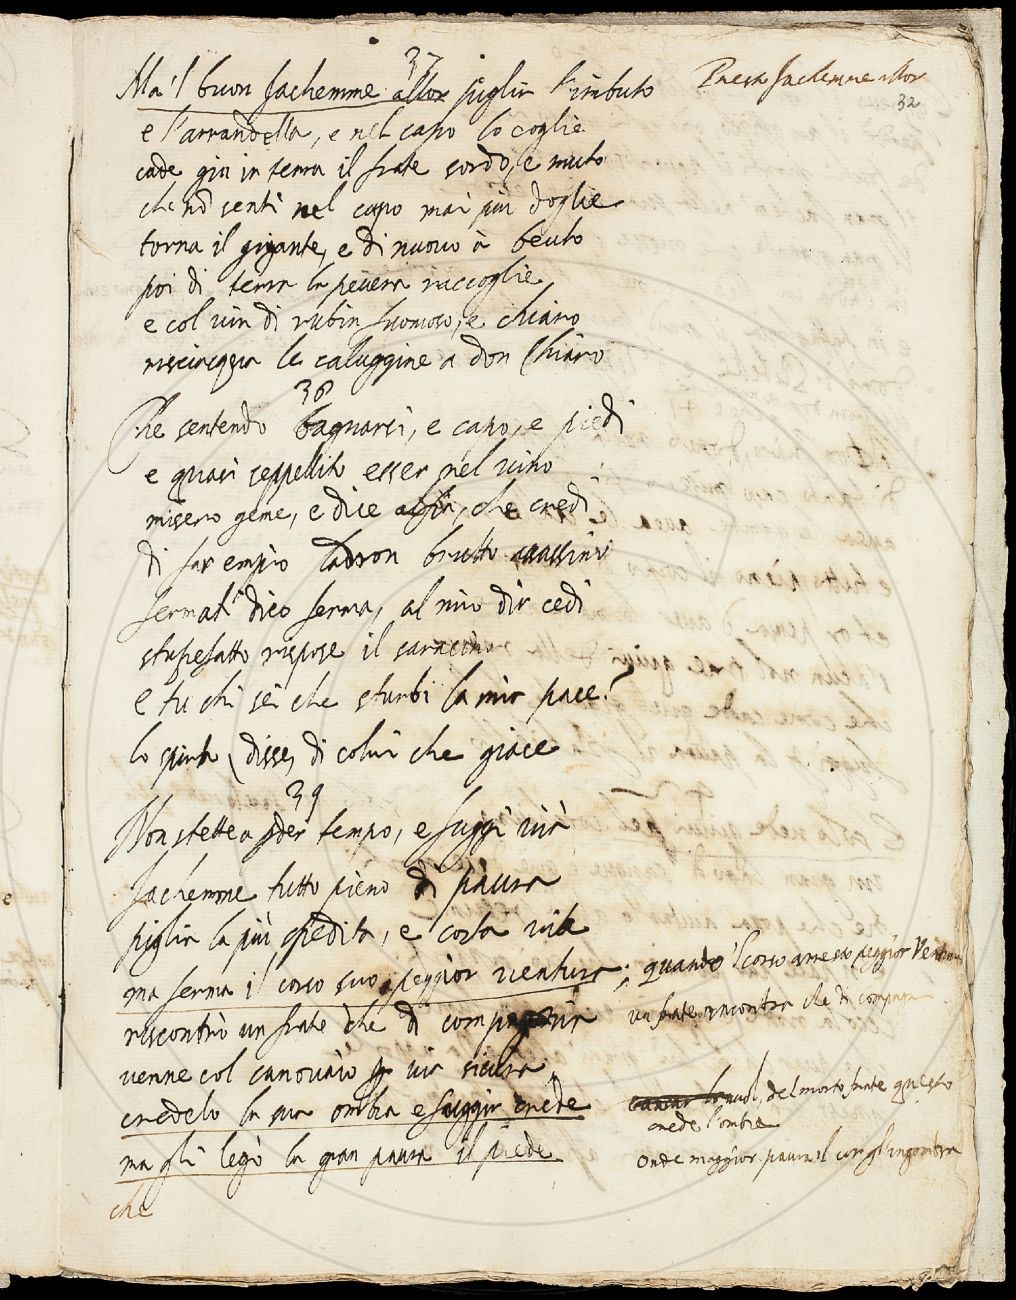 37
Ma 'l buon Sachemme allor piglia l'imbuto
e l'arrandella, e nel capo lo coglie
cade giu in terra il frate sordo, e muto
che nõ senti nel capo mai piu doglie
torna il gigante, e di nuovo à beuto
poi di terra la peuera raccoglie
e col vin di rubin fumoso, e chiaro
risciacqua le caluggine a don Chiaro
38
Che sentendo bagnarsi, e capo, e piedi
e quasi seppellito esser nel vino
misero geme, e dice, che credi
di far empio ladron brutto assassino
fermati dico ferma, al mio dir cedi
stupefatto rispose il saracino
e tu chi sei che sturbi la mia pace?
lo spirto (disse) di colui che giace
39
Non stette a dar tempo, e fuggì via
Sachemme tutto pieno di paura
piglia la più spedita, e corta via
ma ferma il corso suo peggior ventura;
riscontrò un frate che di compagnia
venne col canovaio p via sicura,
credelo la sua ombra e fuggir crede
ma gli legò la gran paura il piede
che
Presa Sachemme allor
32
quando 'l corso arresta peggior Ventura
un frate rincontra che di compagnia
del morto frate questo
crede l'ombra
onde maggior paura il cor gl'ingombra